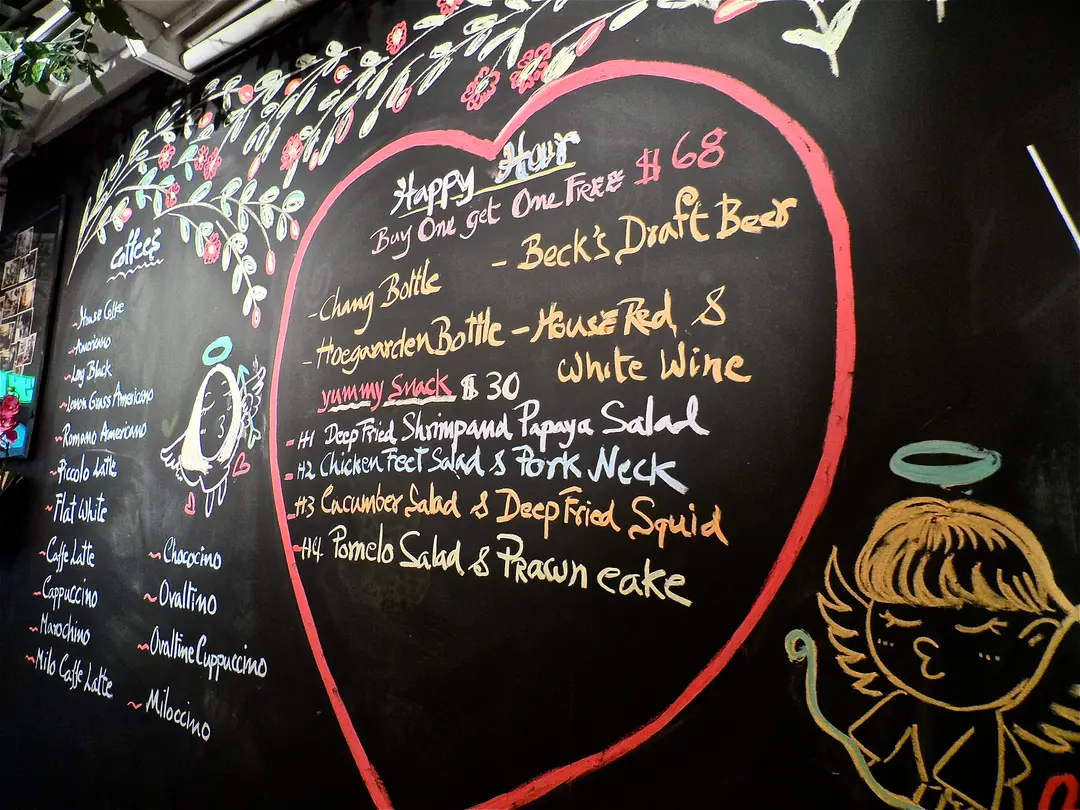 Coffees
~House Coffee
~Americano
~Long Black
~Lemon Grass Americano
~Romano Americano
~Piccolo Latte
~Flat White
~Caffe Latte
~Cappuccino
~Marochino
~Milo Caffe Latte
~Chococino
~Ovaltino
~Ovaltine Cuppuccino
~Miloccino
Happy Hour
Buy One get One Free $68
- Chang Bottle
- Beck's Draft Beer
- Hoegaarden Bottle
- House Red &
White Wine
yummy Snack $30
- H1 Deep Fried Shrimp and Papaya Salad
- H2 Chicken Feet Salad & Pork Neck
- H3 Cucumber Salad & Deep Fried Squid
- H4 Pomelo Salad & Prawn cake